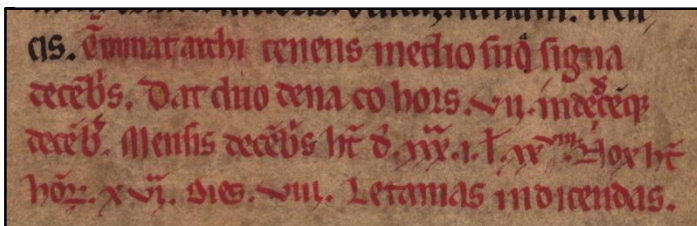 cis. Eminat archi tenens medio suoq̄ signa
decēbs. Dat duo dena cohors. vii. indeq̄
decēb. Mensis decēbs ht̄ d̄. xxx.i. l. xxviiii. Nox ht̄
hōr. xvi. dies. viii. Letanias indicendas.